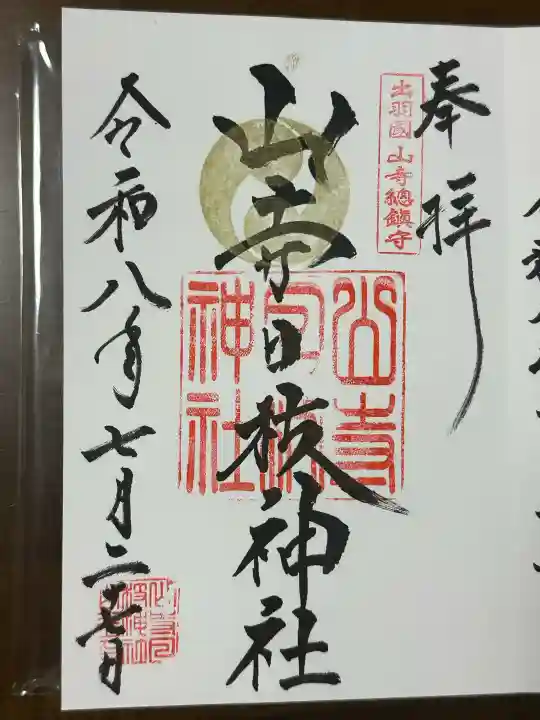 奉拝
出羽國 山寺總鎮守
山寺日枝神社
山寺日枝神社
令和八年七月二十七日